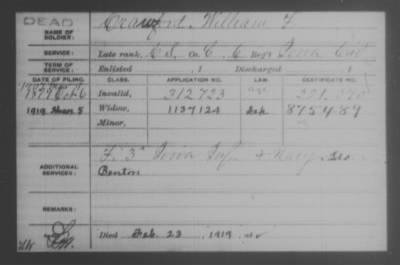 DEAD
NAME OF SOLDIER: Crawford, William F.
SERVICE: Late rank, Co. C, 6 Reg't Iowa Cav
TERM OF SERVICE: Enlisted , 1 Discharged
DATE OF FILING. CLASS. APPLICATION NO. LAW. CERTIFICATE NO.
1879 Oct 6 Invalid, 312723
1919 5 Widow, 1137124 875489
Minor,
ADDITIONAL SERVICES: F. 3" Iowa Inf & Navy
Benton
REMARKS:
Died Feb. 23, 1919